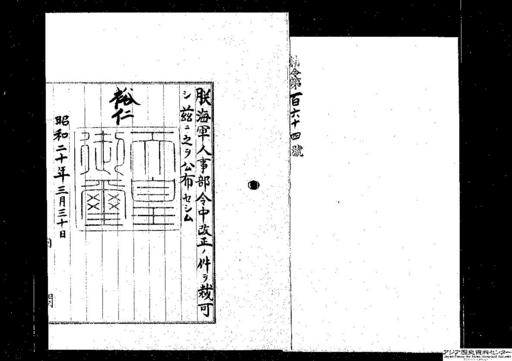 勅令第百六十四號
朕海軍人事部令中改正ノ件ヲ裁可
シ茲ニ之ヲ公布セシム
裕仁
天皇御璽
昭和二十年三月三十日
アジア歴史資料センター